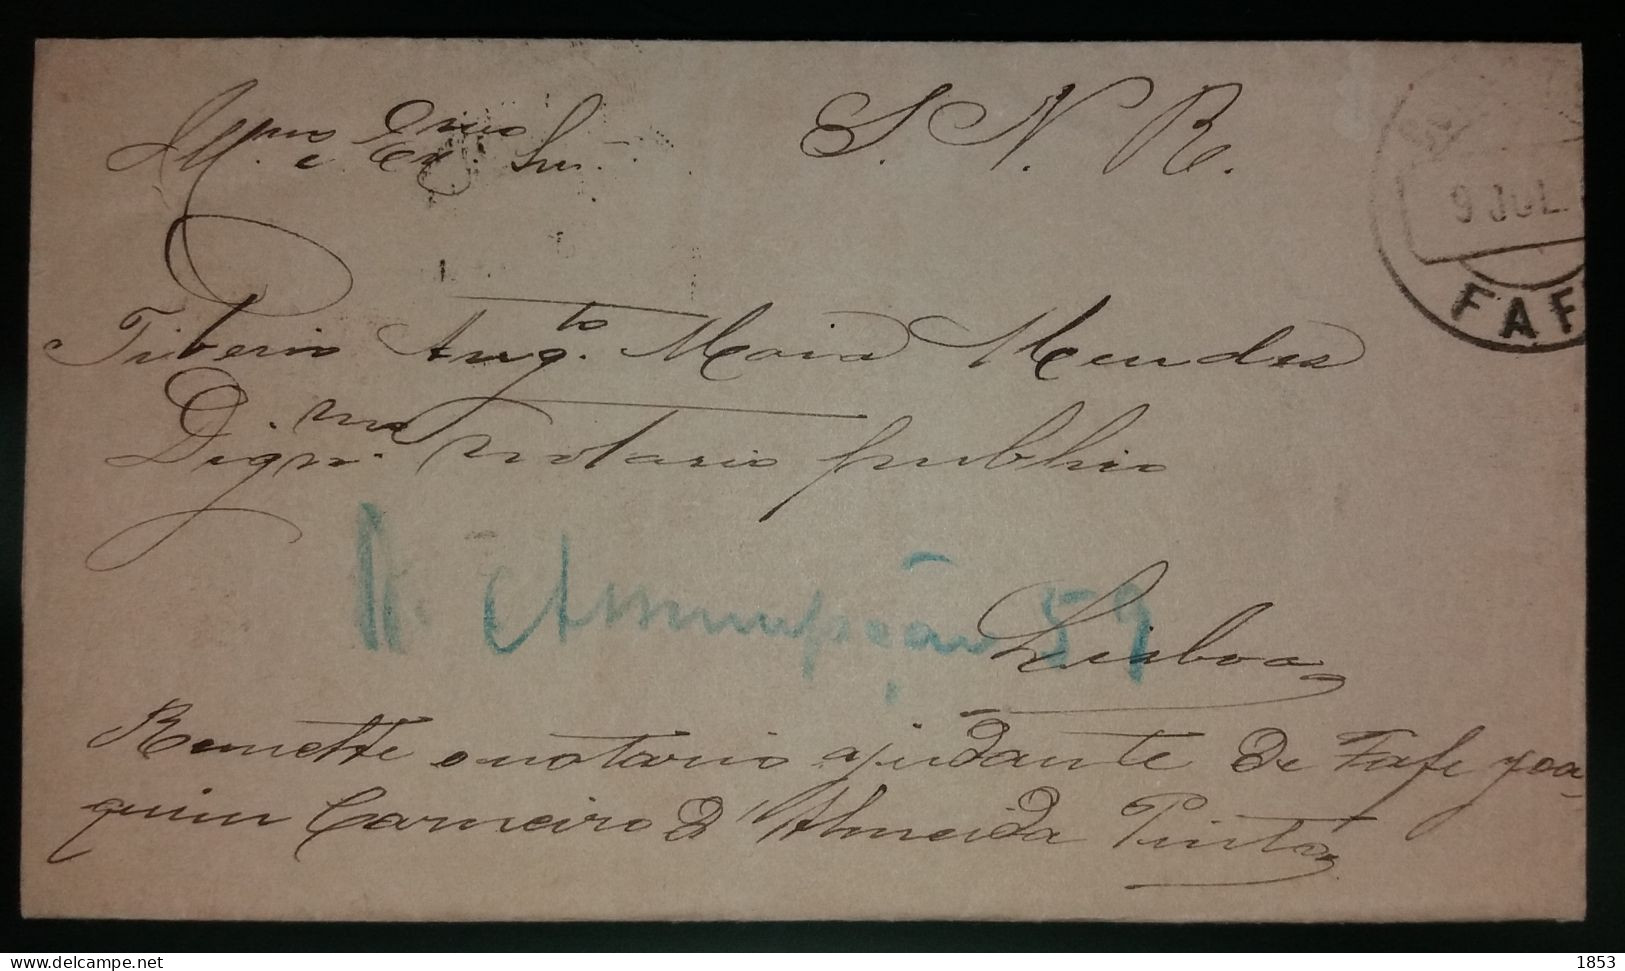 Ill.mo e Ex.mo Snr.
S. N. R.
9 JUL.
FAF
Tiberio Aug.to Maia Mendes
Dign.mo notario publico
R. Assumpção 59
Lisboa
Remette o notario ajudante de Fafe Joa-
quim Carneiro d'Almeida Pinto
delcampe.net
Os_Fidalgos
1853